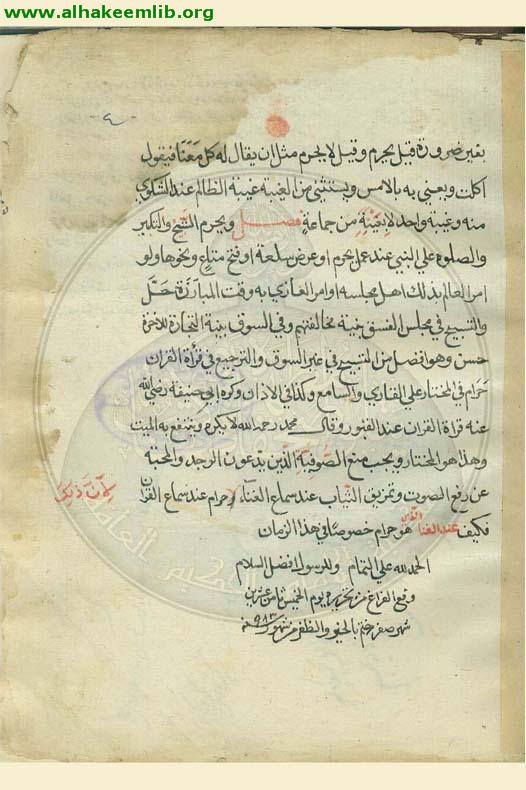 www.alhakeemlib.org
بغير ضرورة قيل يحرم وقيل لا يحرم مثل ان يقال له كل معنا فيقول
اكلت ويعني به بالامس ويستثنى من الغيبة غيبة الظالم عند الشكوى
منه وغيبة واحد لا بعينه من جماعة فصل ويحرم التسبيح والتكبير
والصلوة علي النبي عند عمل يحرم او عرض سلعة او فتح متاع ونحوها ولو
امر العالم بذلك اهل مجلسه او امر الغازي به وقت المبارزة حل
والتسبيح في مجلس الفسق بنية مخالفتهم وفي السوق بنية التجارة للاخرة
حسن وهو افضل من التسبيح في غير السوق والترجيع في قرأة القران
حرام في المختار علي القاري والسامع وكذا في الاذان وكره ابي حنيفة رضي الله
عنه قراة القران عند القبور وقال محمد رحمه الله لا يكره وينتفع به الميت
وهذا هو المختار ويجب منع الصوفية الذين يدعون الوجد والمحبة
عن رفع الصوت وتمزيق الثياب عند سماع الغناء وحرام عند سماع القران
لان ذلك
فكيف عند الغنا الذي هو حرام خصوصا في هذا الزمان
الحمد لله علي التمام وللرسول افضل السلام
وقع الفراغ من تحريره يوم الخميس ثامن عشرين
شهر صفر ختم بالخير والظفر من شهور سنة ٩٨٣